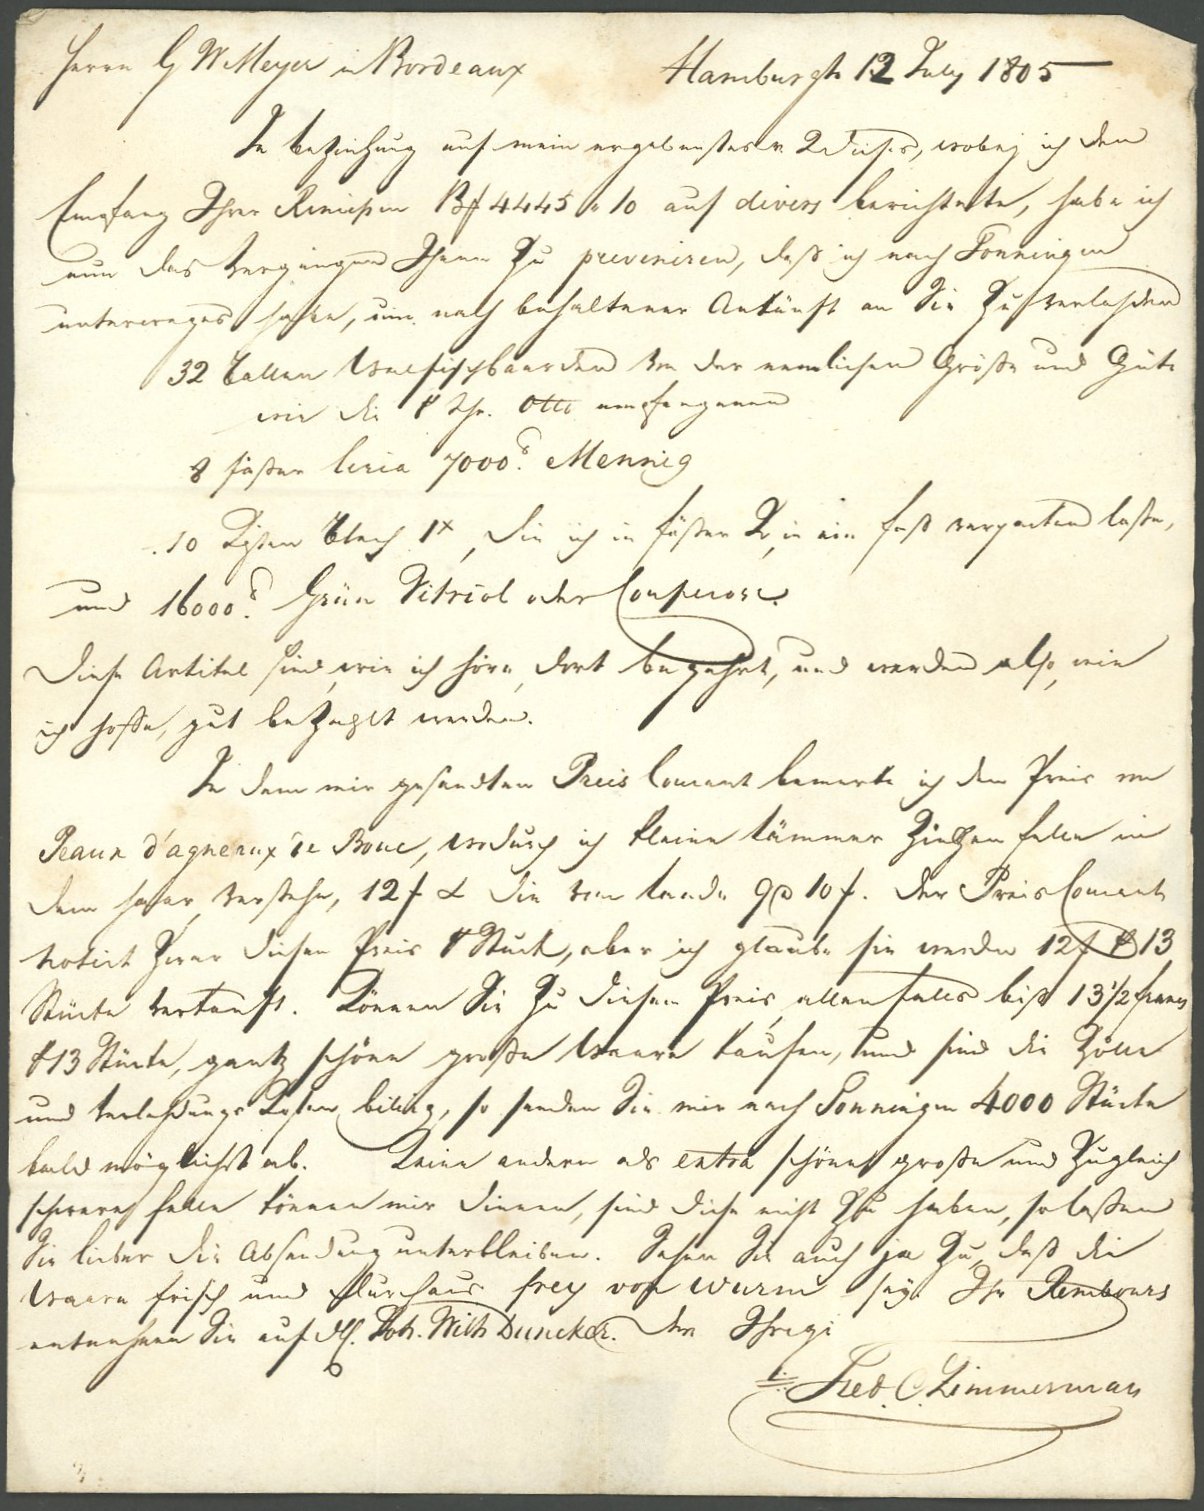 Herrn G W Meyer in Bordeaux Hamburgh 12 July 1805
In beziehung auf mein ergebenstes v. 2 dieses, wobey ich den
Empfang Ihrer Rimessen 4445 10 auf divers berichtete, habe ich
nun das vergnügen Ihnen zu preveniren, daß ich nach Tonningen
unterweges habe, um nach behaltener Ankunft an Sie zu verladen
32 Ballen Wallfischbaarden von der nemlichen Größe und Güte
wie die Otto empfangenen
8 fäßer circa 7000 lb. Mennig
10 Kisten Blech 1x, die ich in fäßer in ein faß verpacken laße,
und 16000 lb. Grün Vitriol oder Couperose.
Diese Artikel sind, wie ich höre, dort begehrt, und werden also, wie
ich hoffe, gut bezahlt werden.
In dem mir gesandten Preis Courant bemerke ich den Preis von
Peaux d'agneaux de Bouc, wodurch ich kleine Lämmer Ziegen felle in
dem haar verstehe, 12 f & die vom Lande 9 a 10 f. Der Preis Courant
notirt zwar diesen Preis Stück, aber ich glaube sie werden 12 f 13
Stücke verkauft. Können Sie zu diesem Preis, allenfalls biß 13 1/2 francs
13 Stücke, gantz schöne große Waare kaufen, und sind die Zölle
und Verladungs Kosten billig, so senden Sie mir nach Tonningen 4000 Stücke
bald möglichst ab. Keine andere als extra schöne große und zugleich
schwere felle können mir dienen, sind diese nicht zu haben, so laßen
Sie lieber die Absendung unterbleiben. Sehen Sie auch ja zu, daß die
Waare frisch und durchaus frey von Wurm sey. Ihr Rembours
entnehmen Sie auf Joh. Wilh Duncker. der Ihrige
Fred. C. Zimmerman